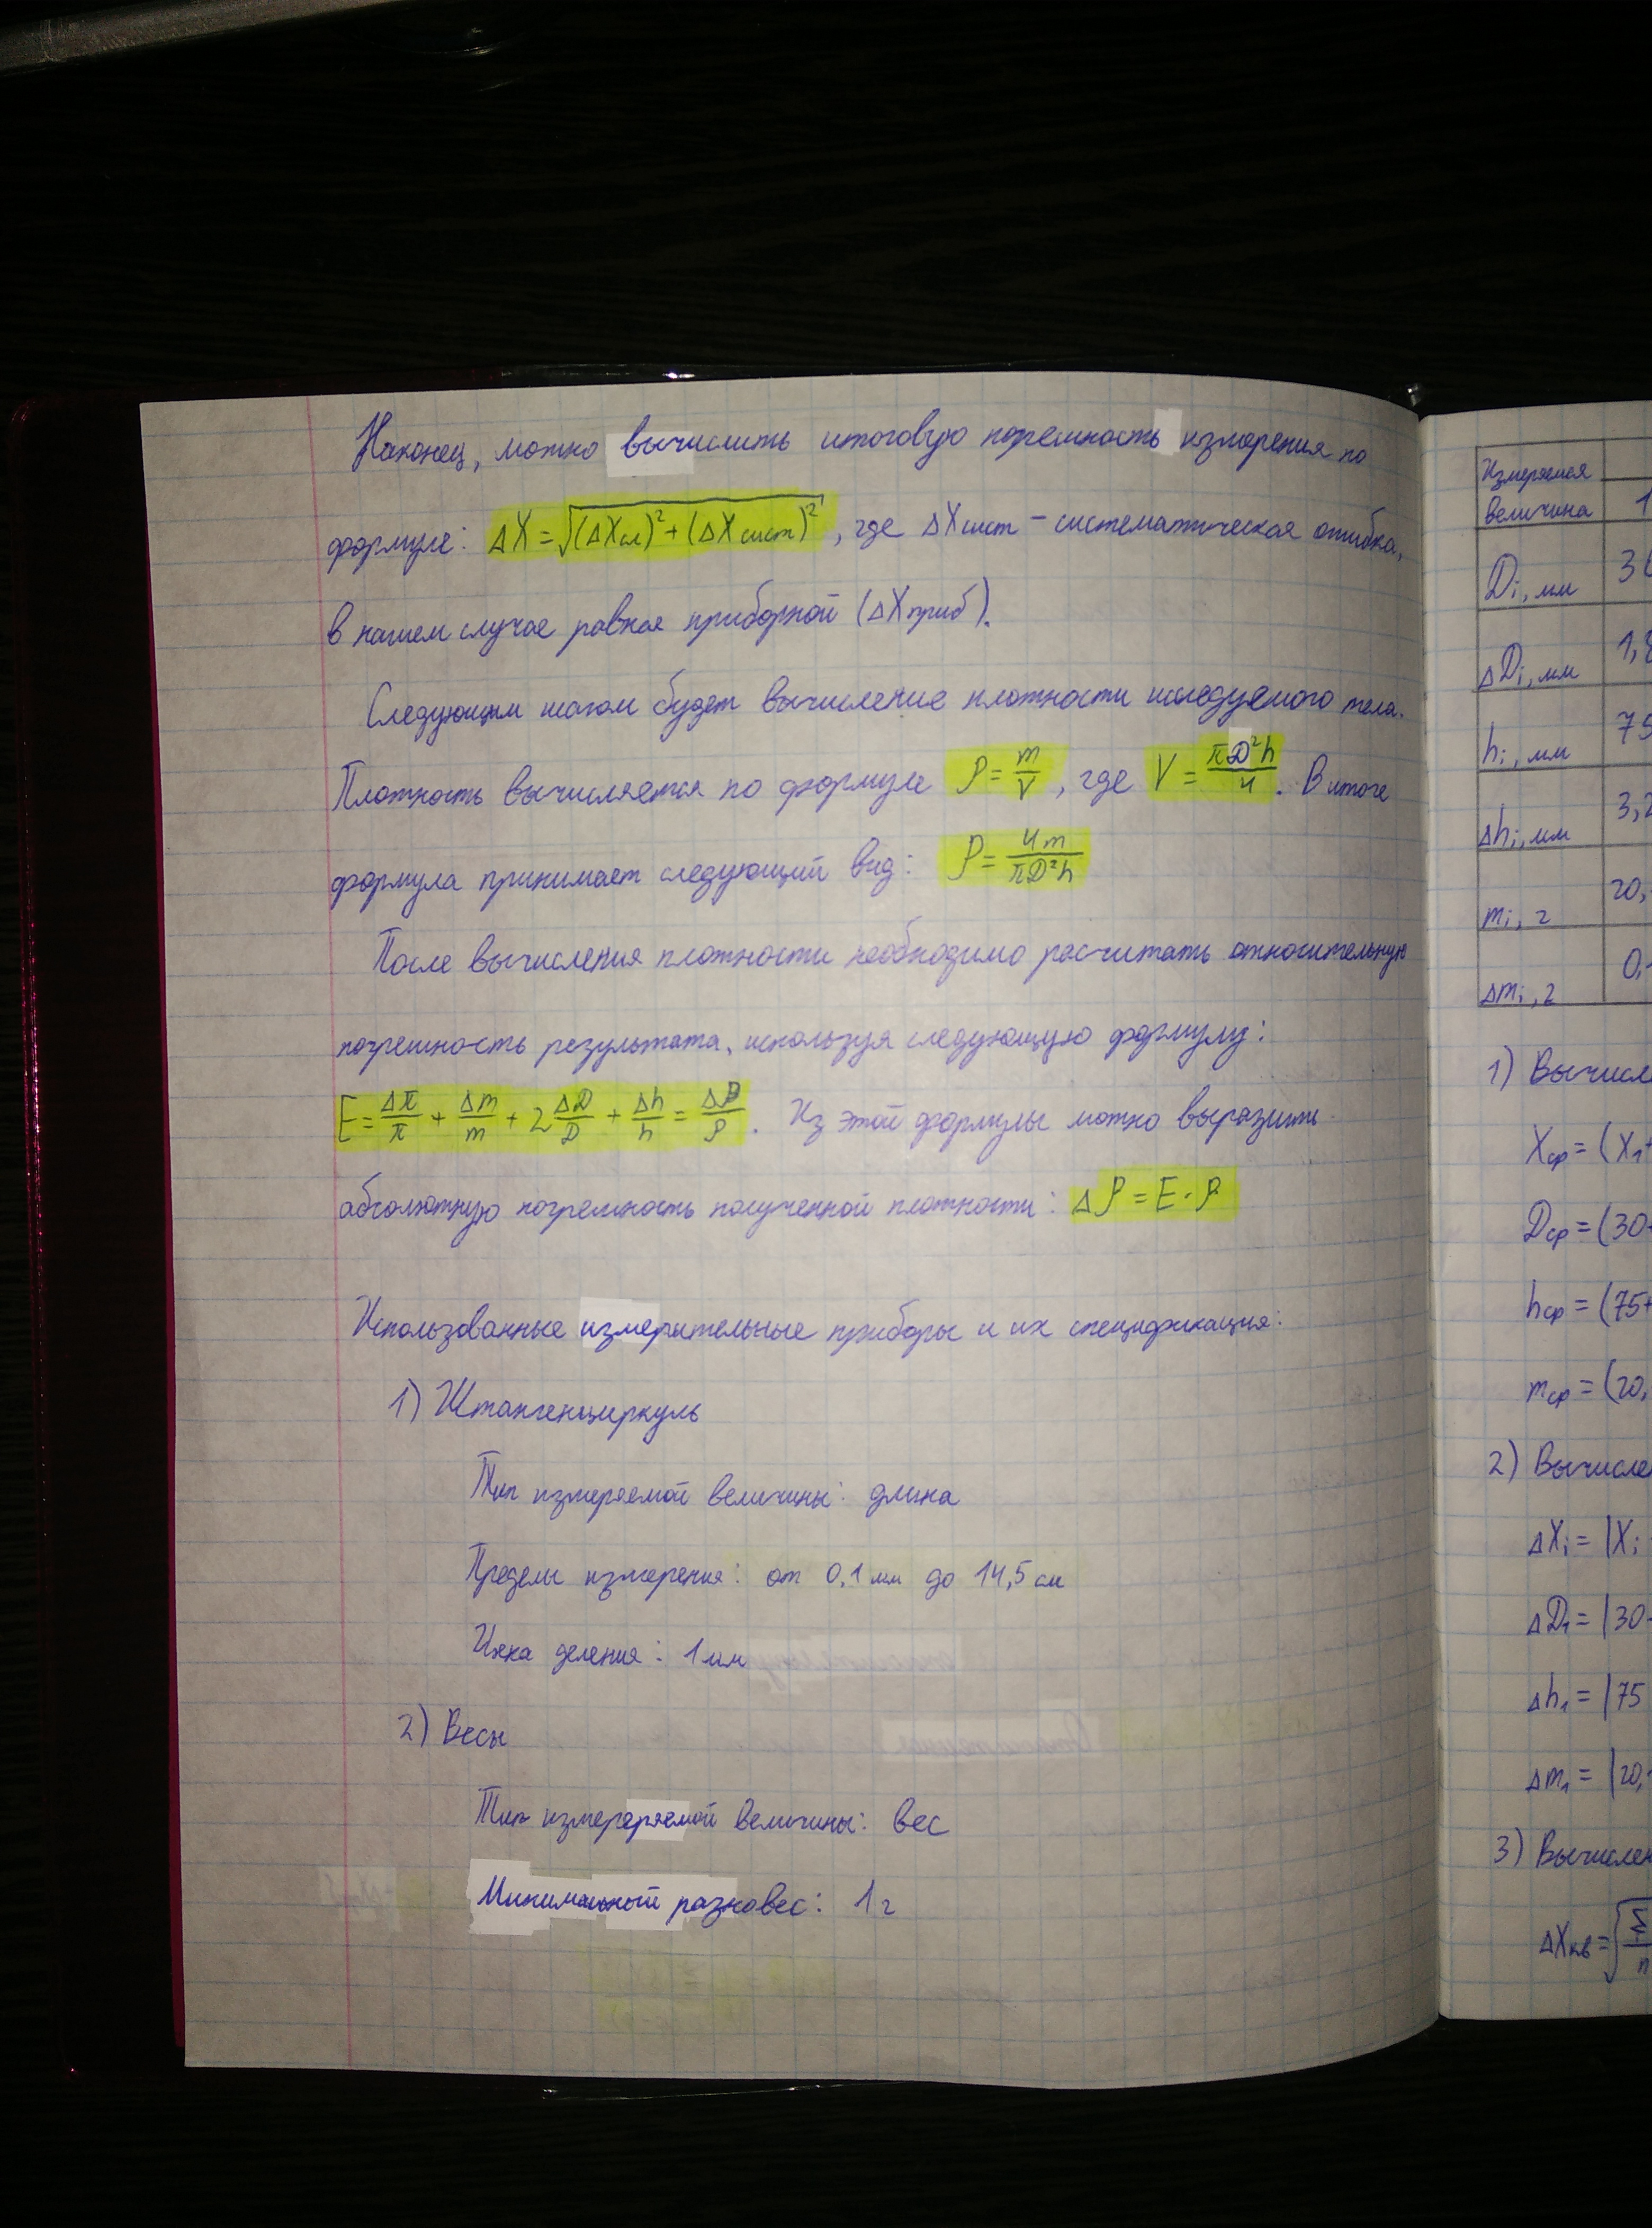 Наконец, можно вычислить итоговую погрешность измерения по
формуле: ΔX = √((ΔXсл)² + (ΔXсист)²), где ΔXсист – систематическая ошибка,
в нашем случае равная приборной (ΔXприб).
Следующим шагом будет вычисление плотности исследуемого тела.
Плотность вычисляется по формуле ρ = m/V, где V = πD²h/4. В итоге
формула принимает следующий вид: ρ = 4m/πD²h
После вычисления плотности необходимо расчитать относительную
погрешность результата, используя следующую формулу:
E = Δπ/π + Δm/m + 2ΔD/D + Δh/h = Δρ/ρ. Из этой формулы можно выразить
абсолютную погрешность полученной плотности: Δρ = E · ρ
Использованные измерительные приборы и их спецификация:
1) Штангенциркуль
Тип измеряемой величины: длина
Пределы измерения: от 0,1 мм до 14,5 см
Цена деления: 1 мм
2) Весы
Тип измереряемой величины: вес
Минимальный разновес: 1 г
Измеряемая
величина 1
Di, мм
ΔDi, мм 1,8
hi, мм 75
Δhi, мм 3,2
mi, г 20,
Δmi, г 0,
1) Вычисл
Xср = (X1+
Dср = (30+
hср = (75+
mср = (20,
2) Вычисле
ΔXi = |Xi
ΔD1 = |30-
Δh1 = |75
Δm1 = |20,
3) Вычислен
ΔXкв = √Σ/n